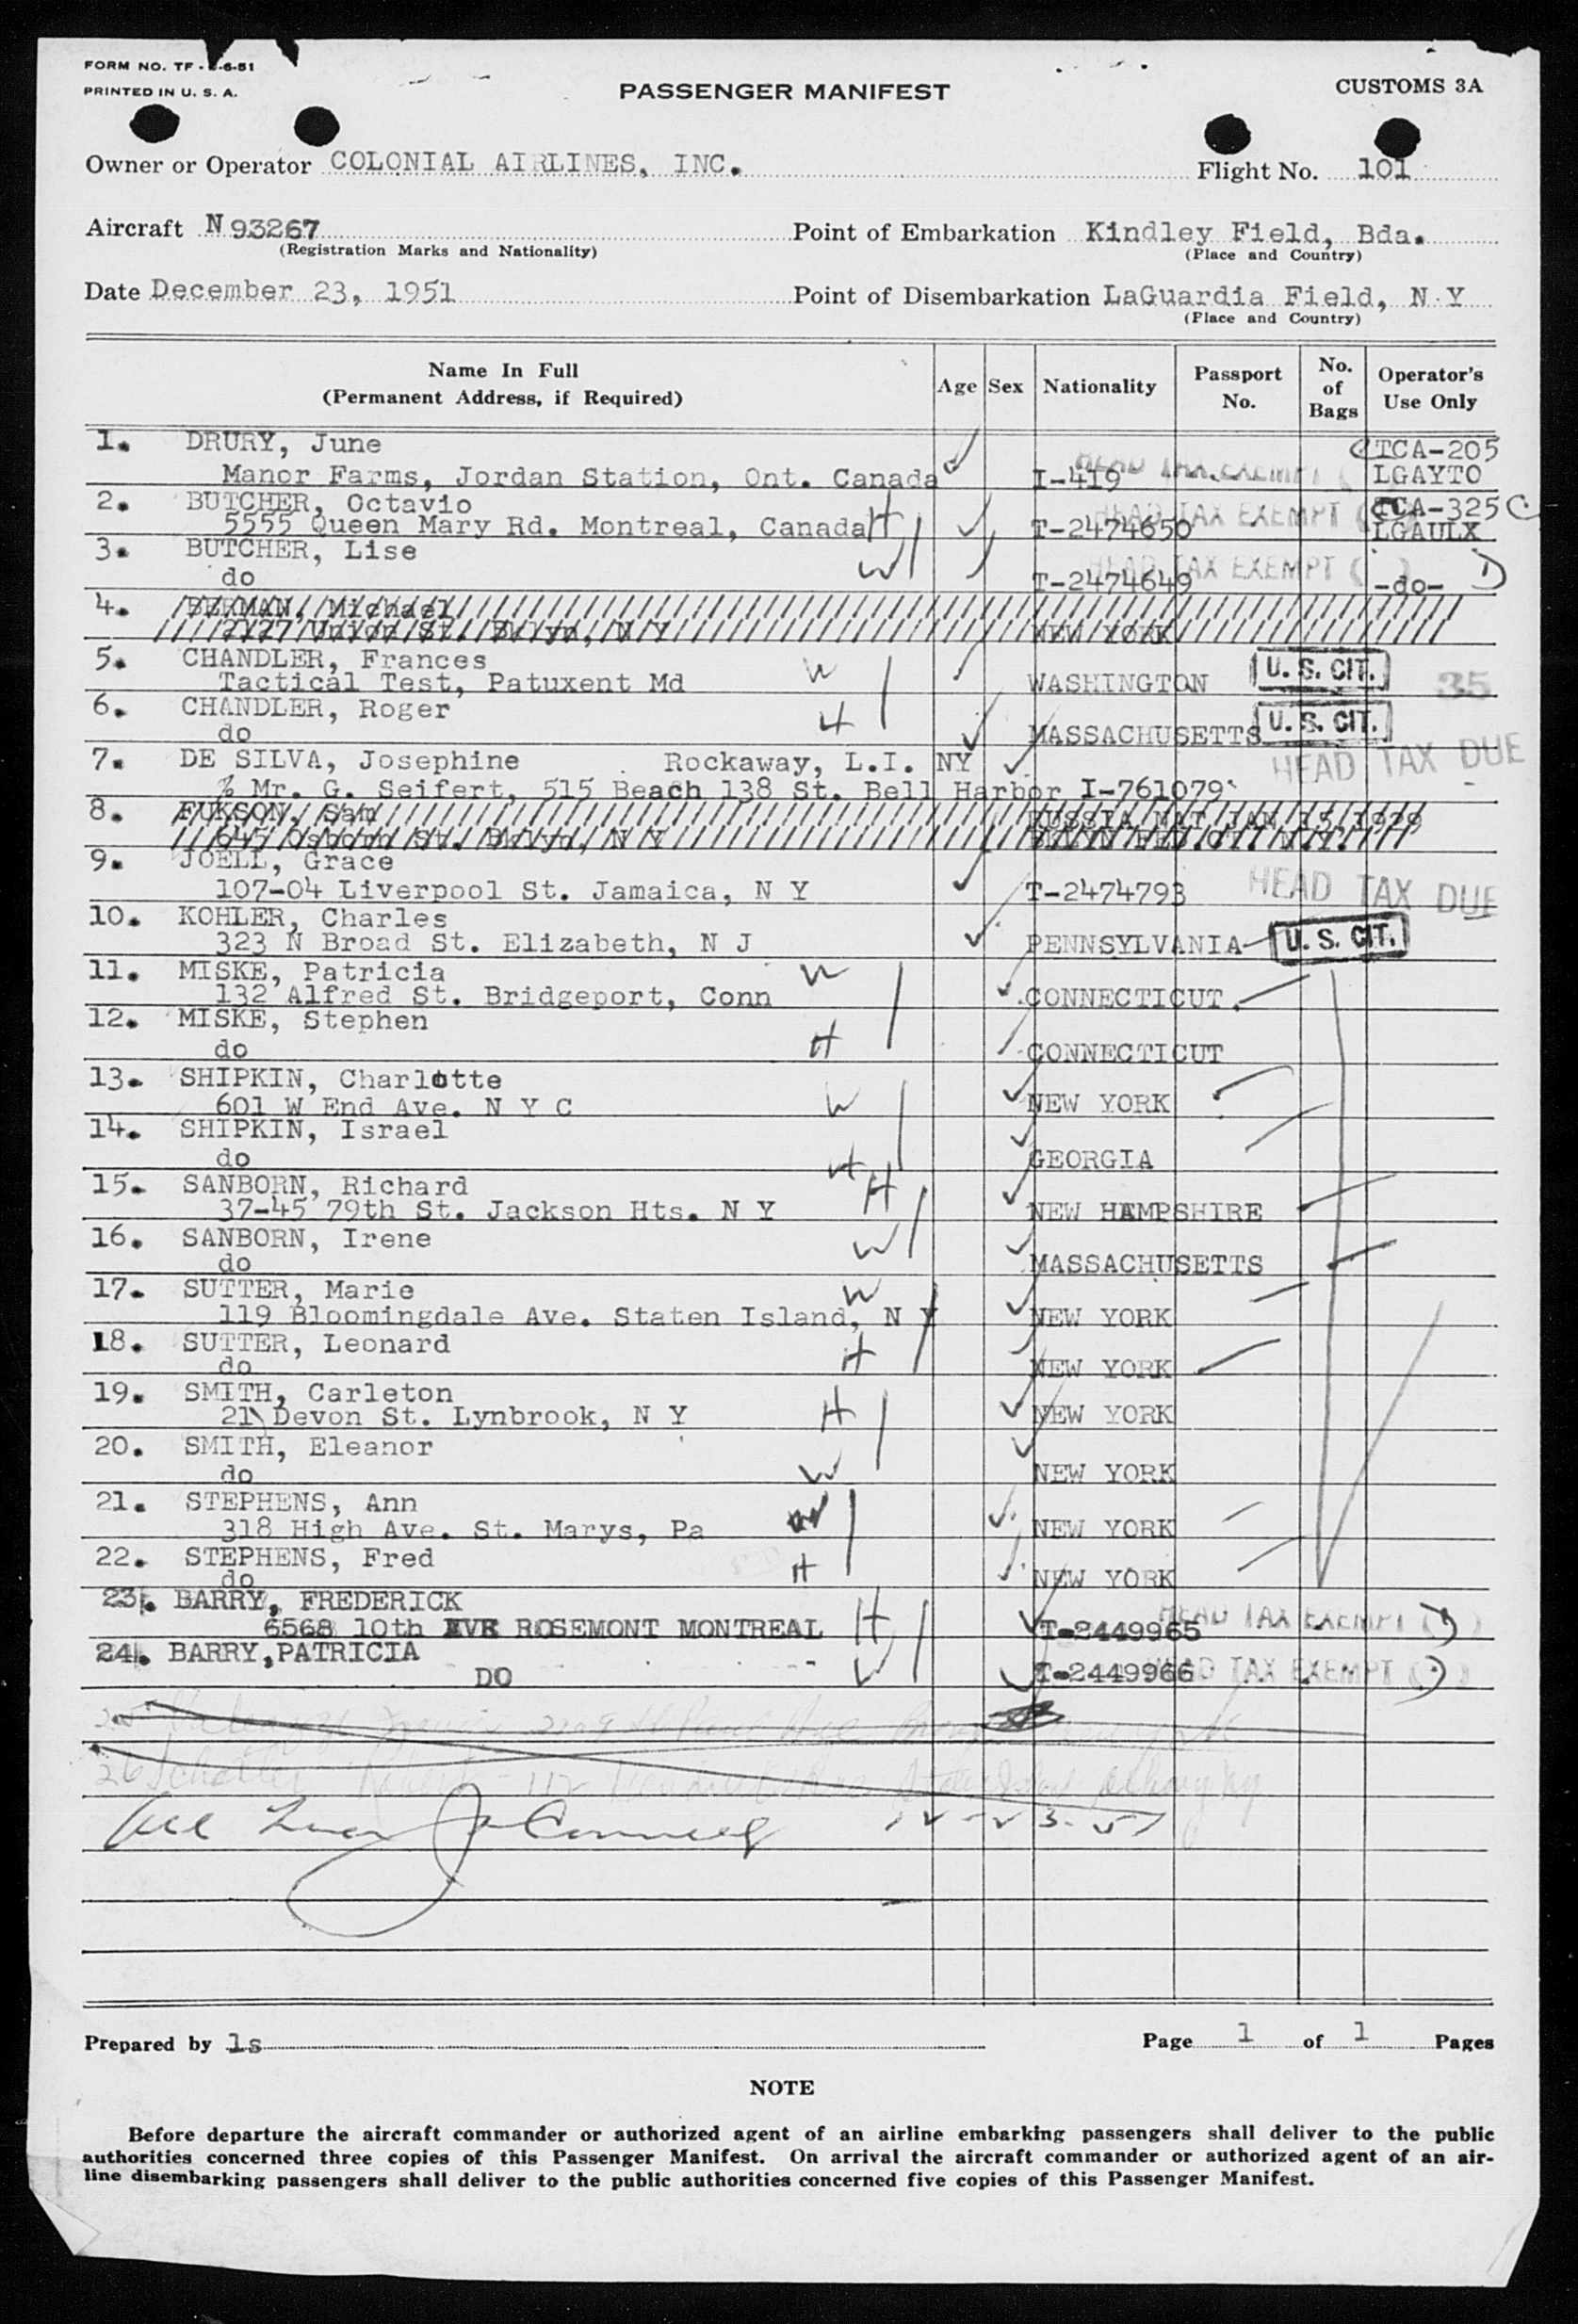 FORM NO. TF - 2-6-51
PRINTED IN U. S. A.
PASSENGER MANIFEST
CUSTOMS 3A
Owner or Operator COLONIAL AIRLINES, INC.
Flight No. 101
Aircraft N 93267
(Registration Marks and Nationality)
Point of Embarkation Kindley Field, Bda.
(Place and Country)
Date December 23, 1951
Point of Disembarkation LaGuardia Field, N Y
(Place and Country)
Name In Full
(Permanent Address, if Required)
Age Sex Nationality
Passport
No.
No.
of
Bags
Operator's
Use Only
1. DRURY, June TCA-205
Manor Farms, Jordan Station, Ont. Canada I-419 HEAD TAX EXEMPT ( LGAYTO
2. BUTCHER, Octavio TCA-325 C
5555 Queen Mary Rd. Montreal, Canada H T-2474650 HEAD TAX EXEMPT ( LGAULX
3. BUTCHER, Lise W
do T-2474649 HEAD TAX EXEMPT ( ) -do- D
4. BEKMAN, Michael
2127 Union St. Bklyn, N Y NEW YORK
5. CHANDLER, Frances W
Tactical Test, Patuxent Md WASHINGTON U. S. CIT. 35
6. CHANDLER, Roger H
do MASSACHUSETTS U. S. CIT.
7. DE SILVA, Josephine Rockaway, L.I. NY HEAD TAX DUE
% Mr. G. Seifert, 515 Beach 138 St. Bell Harbor I-761079
8. FUKSON, Sam RUSSIA NAT JAN 15/1929
645 Osborn St. Bklyn, N Y BKLYN FED.CT N.Y.
9. JOELL, Grace
107-04 Liverpool St. Jamaica, N Y T-2474793 HEAD TAX DUE
10. KOHLER, Charles
323 N Broad St. Elizabeth, N J PENNSYLVANIA U. S. CIT.
11. MISKE, Patricia W
132 Alfred St. Bridgeport, Conn CONNECTICUT
12. MISKE, Stephen H
do CONNECTICUT
13. SHIPKIN, Charlotte
601 W End Ave. N Y C W NEW YORK
14. SHIPKIN, Israel
do H GEORGIA
15. SANBORN, Richard H
37-45 79th St. Jackson Hts. N Y NEW HAMPSHIRE
16. SANBORN, Irene W
do MASSACHUSETTS
17. SUTTER, Marie W
119 Bloomingdale Ave. Staten Island, N Y NEW YORK
18. SUTTER, Leonard H
do NEW YORK
19. SMITH, Carleton H
21 Devon St. Lynbrook, N Y NEW YORK
20. SMITH, Eleanor
do W NEW YORK
21. STEPHENS, Ann W
318 High Ave. St. Marys, Pa NEW YORK
22. STEPHENS, Fred H
do NEW YORK
23. BARRY, FREDERICK H
6568 10th AVE ROSEMONT MONTREAL T-2449965 HEAD TAX EXEMPT ( )
24. BARRY, PATRICIA W
DO T-2449966 HEAD TAX EXEMPT ( )
25
26
12-23-51
Prepared by ls
Page 1 of 1 Pages
NOTE
Before departure the aircraft commander or authorized agent of an airline embarking passengers shall deliver to the public
authorities concerned three copies of this Passenger Manifest. On arrival the aircraft commander or authorized agent of an air-
line disembarking passengers shall deliver to the public authorities concerned five copies of this Passenger Manifest.